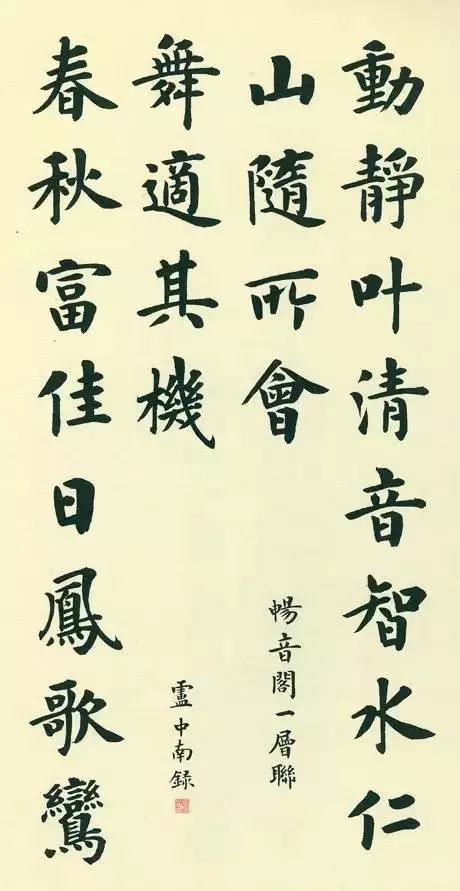 動靜叶清音智水仁
山隨所會
暢音閣一層聯
春秋富佳日鳳歌鸞
舞適其機
盧中南録